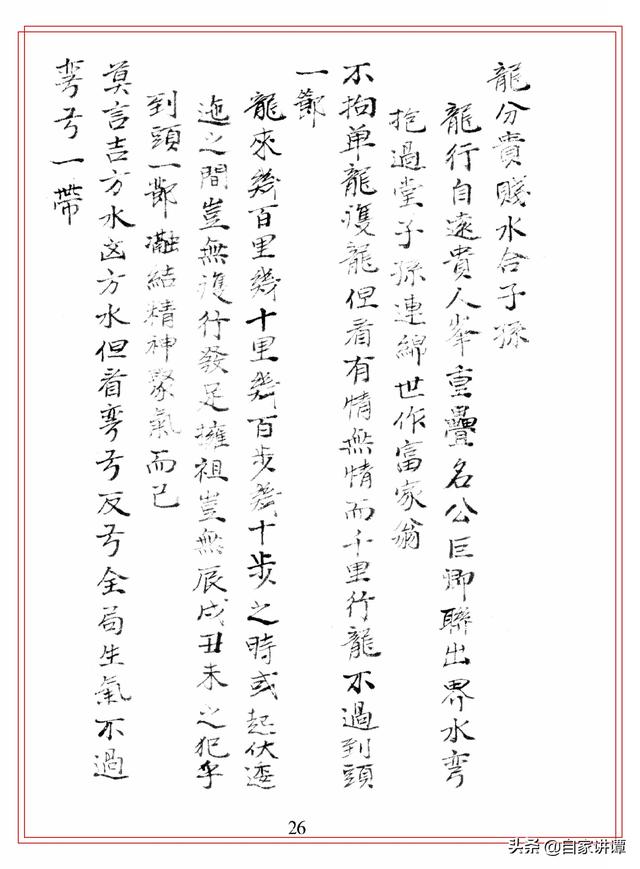 龍分貴賤水合子孫
龍行自遠貴人峯重疊名公巨卿聯出界水彎
抱過堂子孫連綿世作富家翁
不拘单龍復龍但看有情無情而千里行龍不過到頭
一節
龍來幾百里幾十里幾百步幾十步之時或起伏逶
迤之間豈無復行發足擁祖豈無辰戌丑未之犯乎
到頭一節瀜結精神聚氣而已
莫言吉方水凶方水但看彎弓反弓全局生氣不過
彎弓一帶
26
头条 @自家讲谭